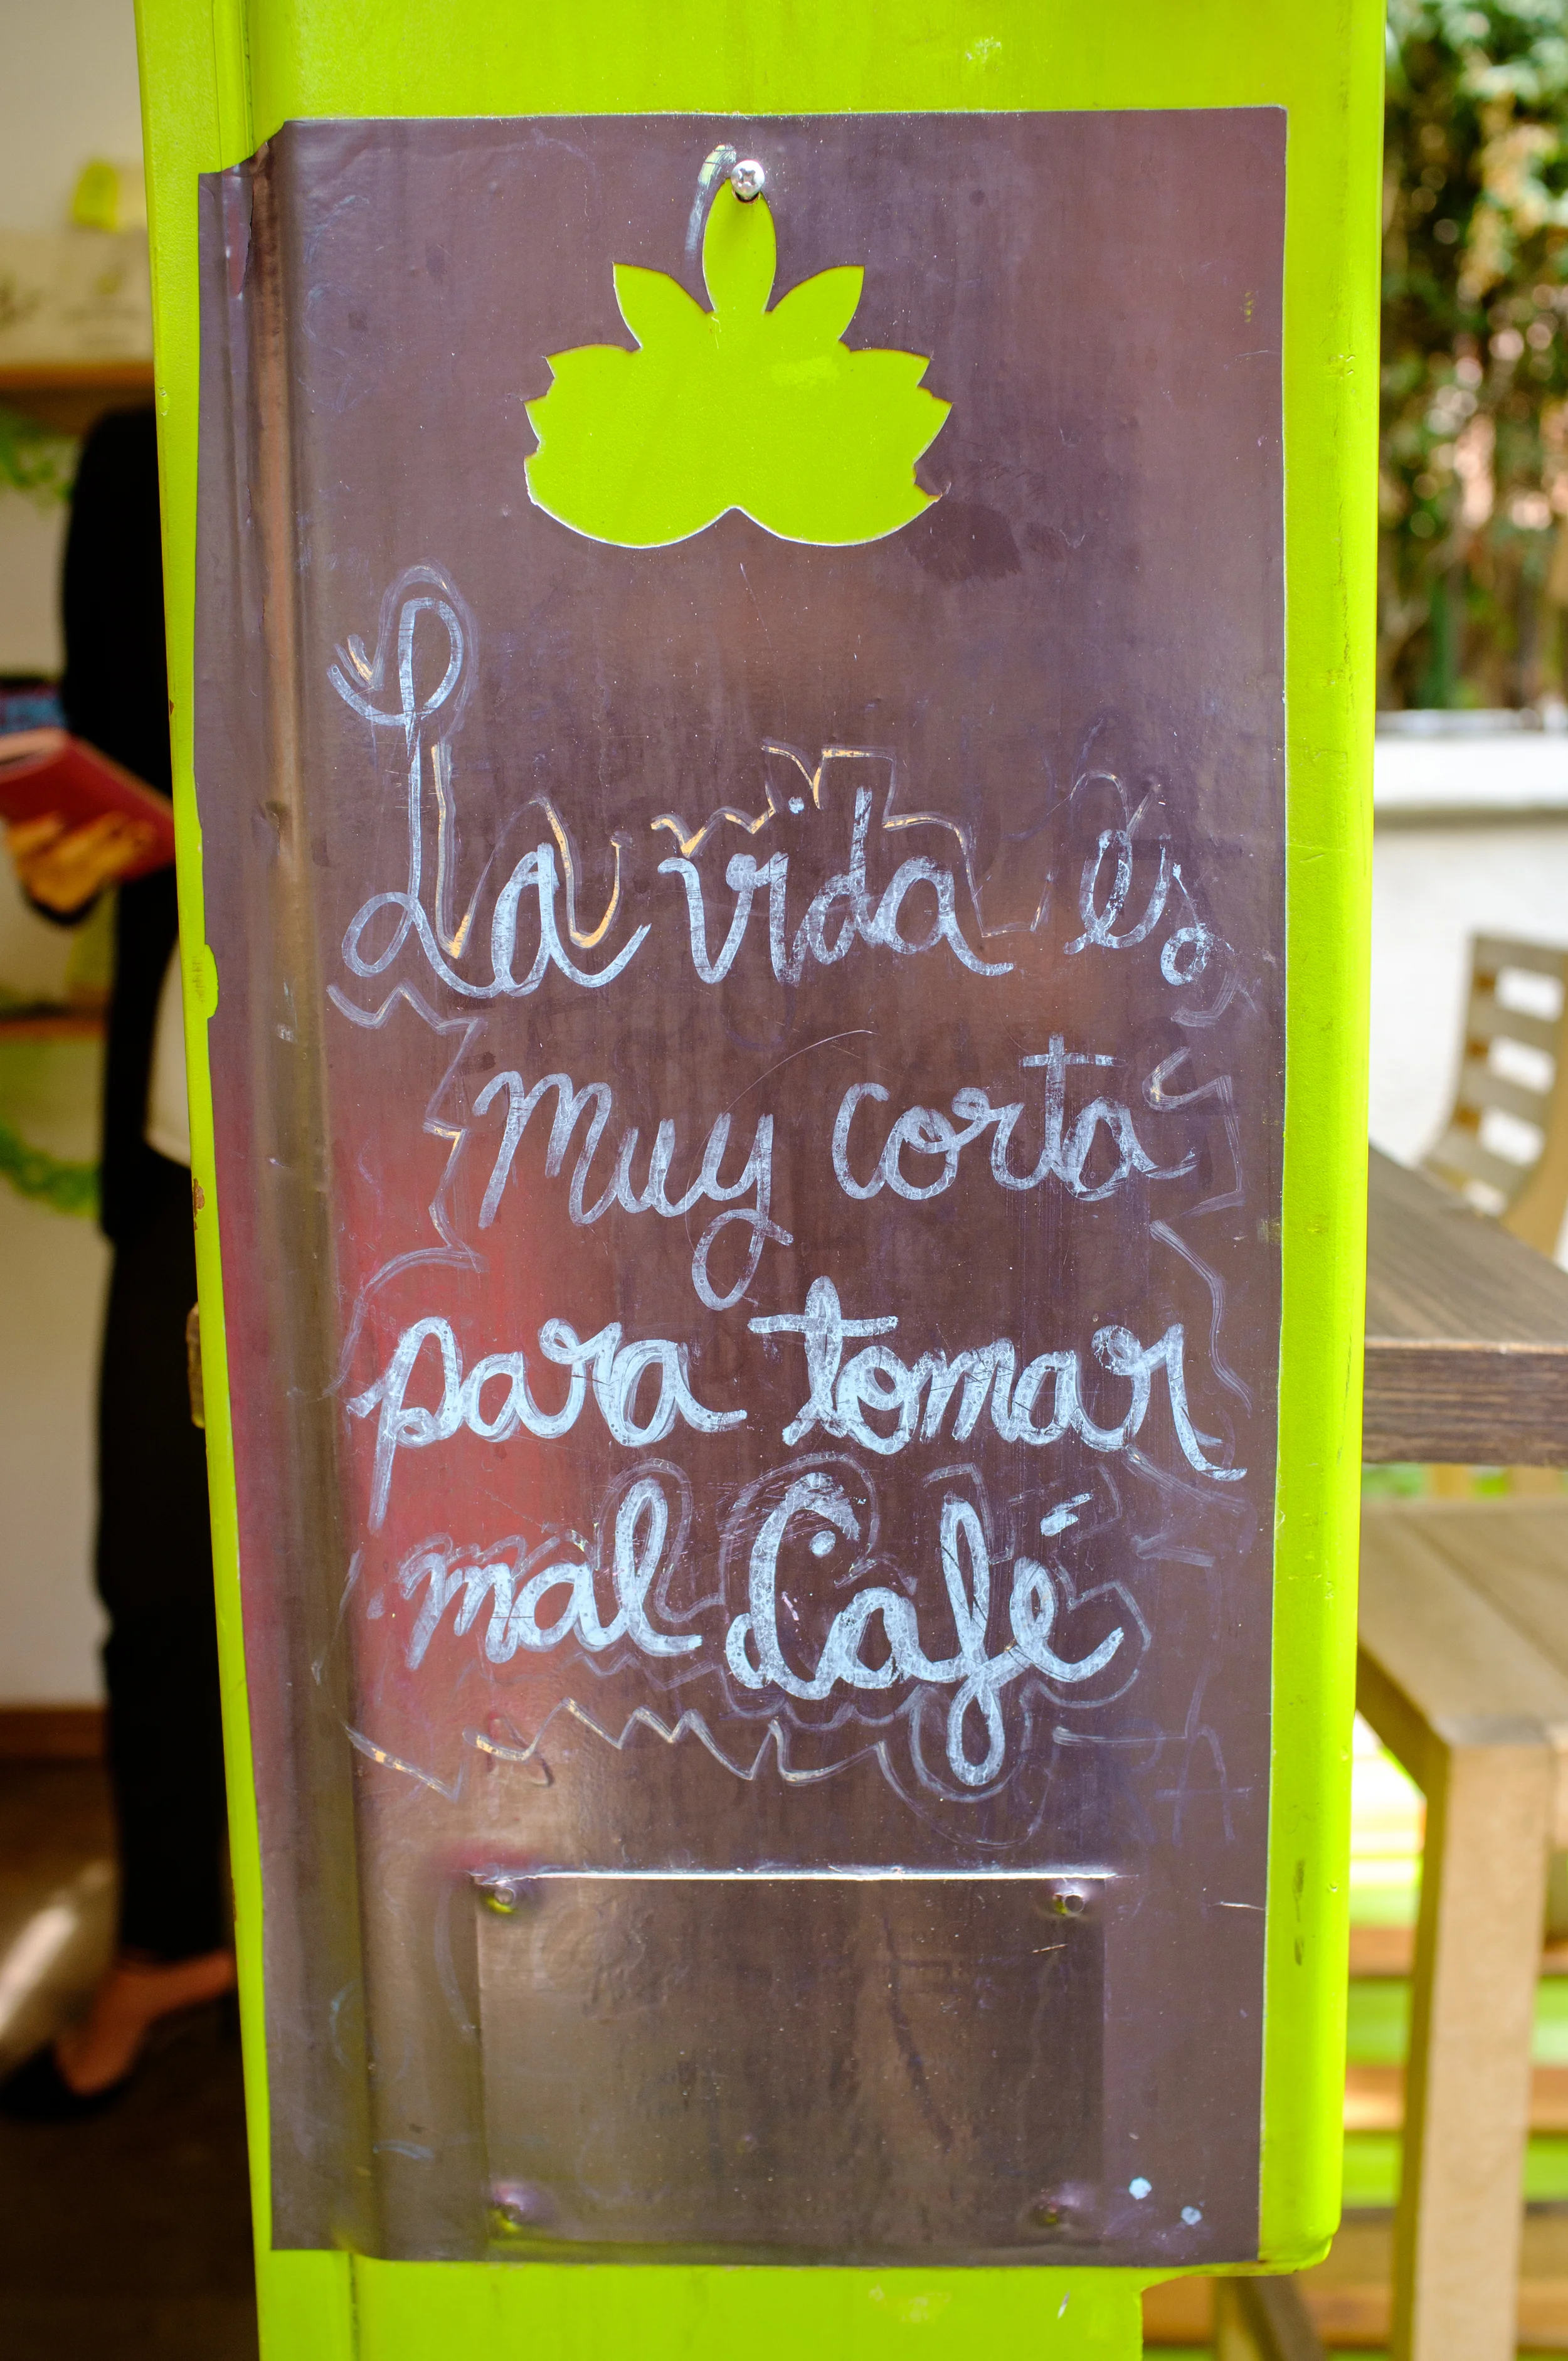 La vida es
muy corta
para tomar
mal Café